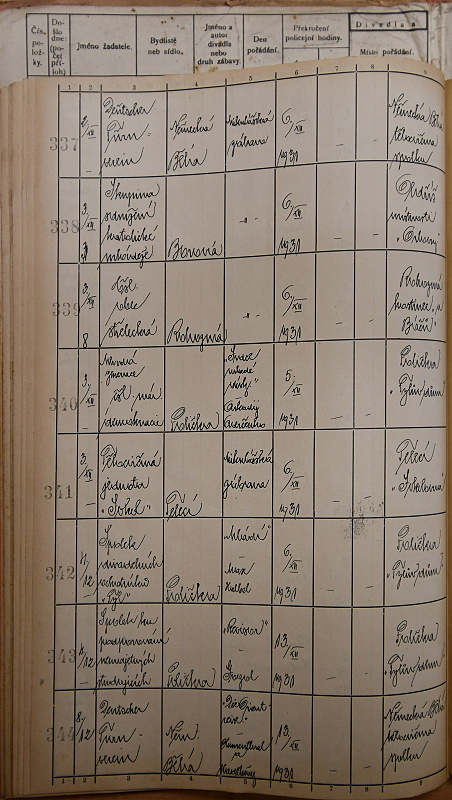 Čís. polož- ky.
Do- šlo dne: (po- čet pří- loh)
Jméno žadatele.
Bydliště neb sídlo.
Jméno a autor divadla nebo druh zábavy.
Den pořádání.
Překročení policejní hodiny.
Divadla a
Místo pořádání.
1 2 3 4 5 6 7 8 9
337
2/XII
Deutscher
Turn-
verein
Německá
Bělá
mikulášská
zábava
6/XII
1931
Německá Bělá
tělocvična
spolku
338
3/XII
Skupina
sdružení
katolické
mládeže
Borová
-"-
6/XII
1931
339
3/XII
8
obec
střelecká
Rohozná
-"-
6/XII
1931
Rohozná
hostinec
340
3/XII
demokracie
Polička
5/XII
1931
Polička
"Tylův dům"
341
3/XII
Tělocvičná
jednota
"Sokol"
Telecí
mikulášská
zábava
6/XII
1931
Telecí
"Sokolovna"
342
4/12
Spolek
divadelních
ochotníků
"Tyl"
Polička
"Mládí"
Max
Halbe
6/XII
1931
Polička
"Tylův dům"
343
4/12
Spolek ku
podporování
nemajetných
studujících
Polička
"Revisor"
Gogol
13/XII
1931
Polička
"Tylův dům"
344
8/12
Deutscher
Turn-
verein
Něm.
Bělá
Blumenthal
a
Kadelburg
13/XII
1931
Německá Bělá
tělocvična
spolku
1 2 3 4 5 6 7 8 9